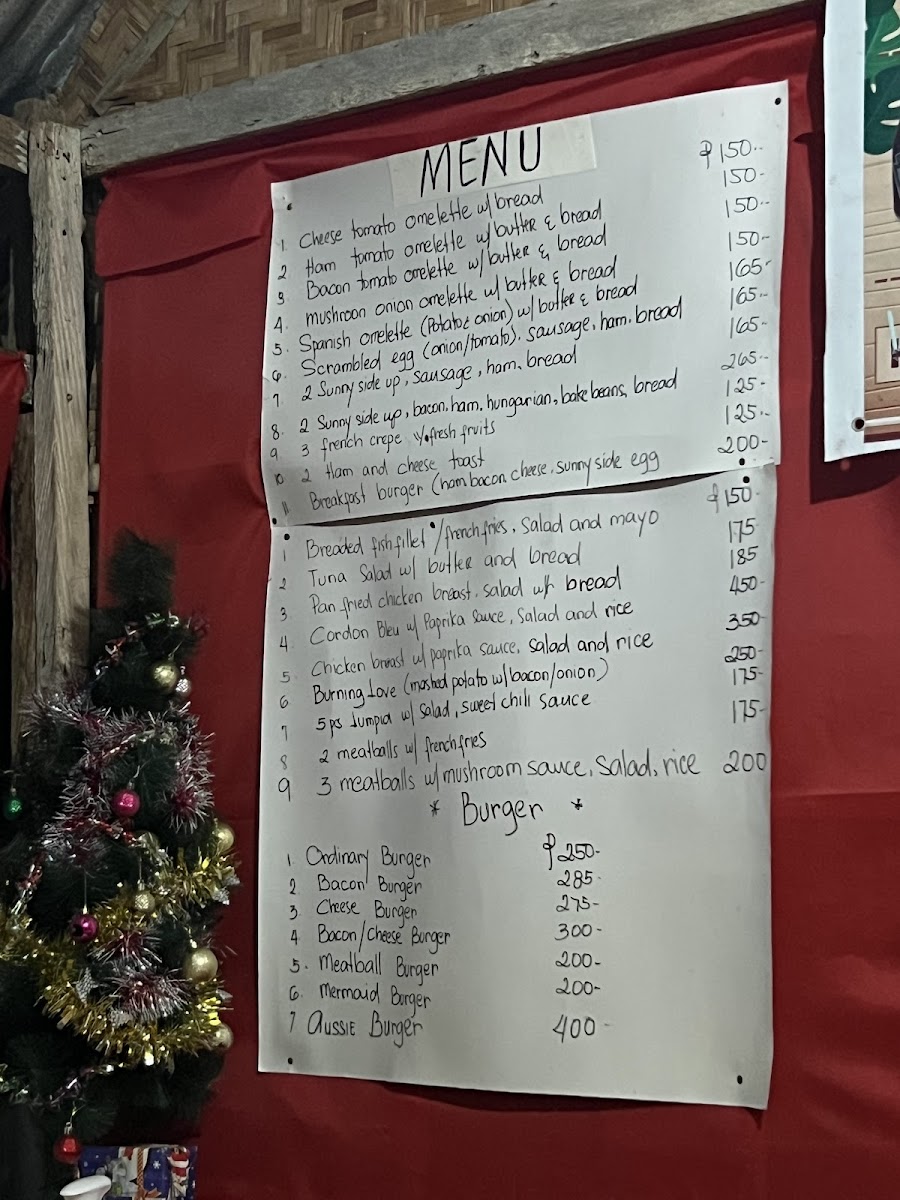 MENU
1. Cheese tomato omelette w/ bread ₱150-
2 Ham tomato omelette w/ butter & bread 150-
3 Bacon tomato omelette w/ butter & bread 150-
4. mushroon onion omelette w/ butter & bread 150-
5. Spanish omelette (Potato & onion) w/ butter & bread 165-
6. Scrambled egg (onion/tomato), sausage, ham, bread 165-
7. 2 Sunny side up, sausage, ham, bread 165-
8. 2 Sunny side up, bacon, ham, hungarian, bake beans, bread 265-
9 3 french crepe w/ fresh fruits 125-
10 2 Ham and cheese toast 125-
11 Breakfast burger (ham bacon cheese, sunny side egg 200-
1 Breaded fish fillet w/ french fries, Salad and mayo ₱150-
2 Tuna Salad w/ butter and bread 175
3. Pan fried chicken breast, salad w/ bread 185
4. Cordon Bleu w/ Paprika sauce, Salad and rice 450-
5. Chicken breast w/ paprika sauce, salad and rice 350-
6 Burning Love (mashed potato w/ bacon/onion) 250-
7 5 ps lumpia w/ salad, sweet chili sauce 175-
8 2 meatballs w/ french fries 175-
9 3 meatballs w/ mushroom sauce, Salad, rice 200
* Burger *
1. Ordinary Burger ₱250-
2 Bacon Burger 285-
3. Cheese Burger 275-
4 Bacon/Cheese Burger 300-
5. Meatball Burger 200-
6. Mermaid Burger 200-
7 AUSSIE Burger 400-